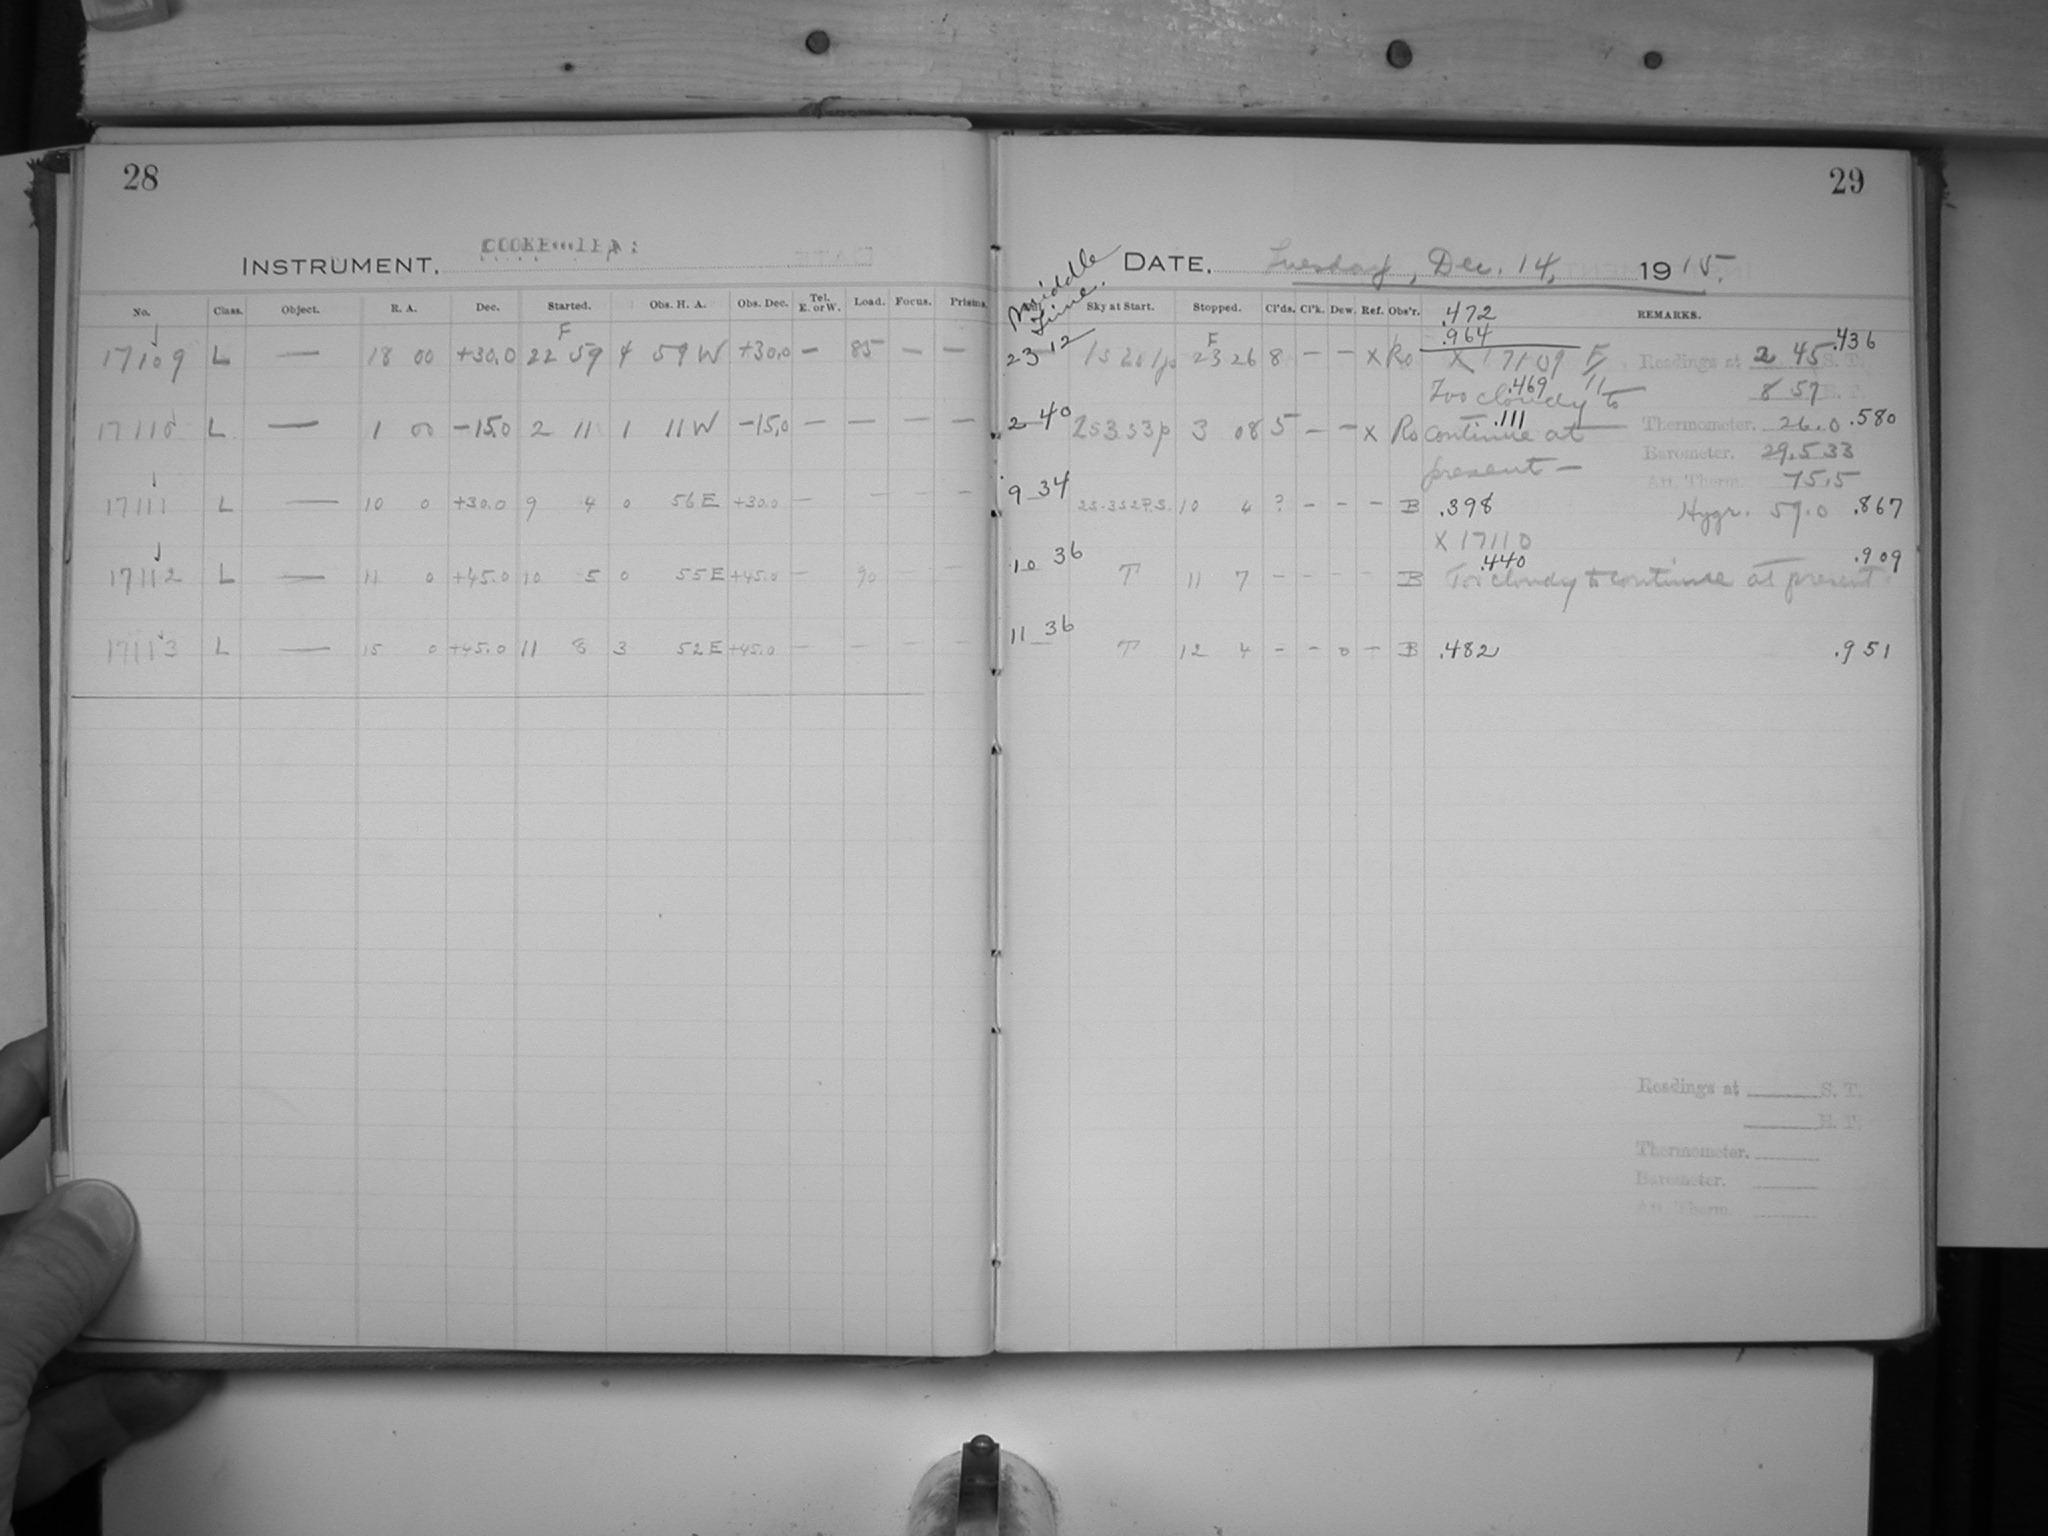 28
INSTRUMENT,
No. Class. Object. R. A. Dec. Started. Obs. H. A. Obs. Dec. Tel. E. or W. Load. Focus. Prisms.
F
17109 L — 18 00 +30.0 22 59 4 59 W +30.0 — 85 — —
17110 L — 1 00 -15.0 2 11 1 11 W -15.0 — — — —
17111 L — 10 0 +30.0 9 4 0 56 E +30.0 — — — —
17112 L — 11 0 +45.0 10 5 0 55 E +45.0 — 90 — —
17113 L — 15 0 +45.0 11 8 3 52 E +45.0 — — — —
29
DATE, Tuesday, Dec. 14, 1915.
Middle Time.
Sky at Start. Stopped. Cl'ds. Cl'k. Dew. Ref. Obs'r. REMARKS.
.472
.964
F
23 12 23 26 8 — — X Ro X 17109 F
.436
Readings at 2 45 S. T.
.469
Too cloudy to
8 57 H. T.
2 40 2s3s3p 3 08 5 — — X Ro continue at
.111
Thermometer. 26.0 .580
Barometer. 29.533
present —
Att. Therm. 75.5
9 34 10 4 ? - - - B .398
Hygr. 59.0 .867
X 17110
10 36 T 11 7 - - - - B Too cloudy to continue at present
.440 .909
11 36 T 12 4 - - 0 - B .482 .951
Readings at S. T.
H. T.
Thermometer.
Barometer.
Att. Therm.